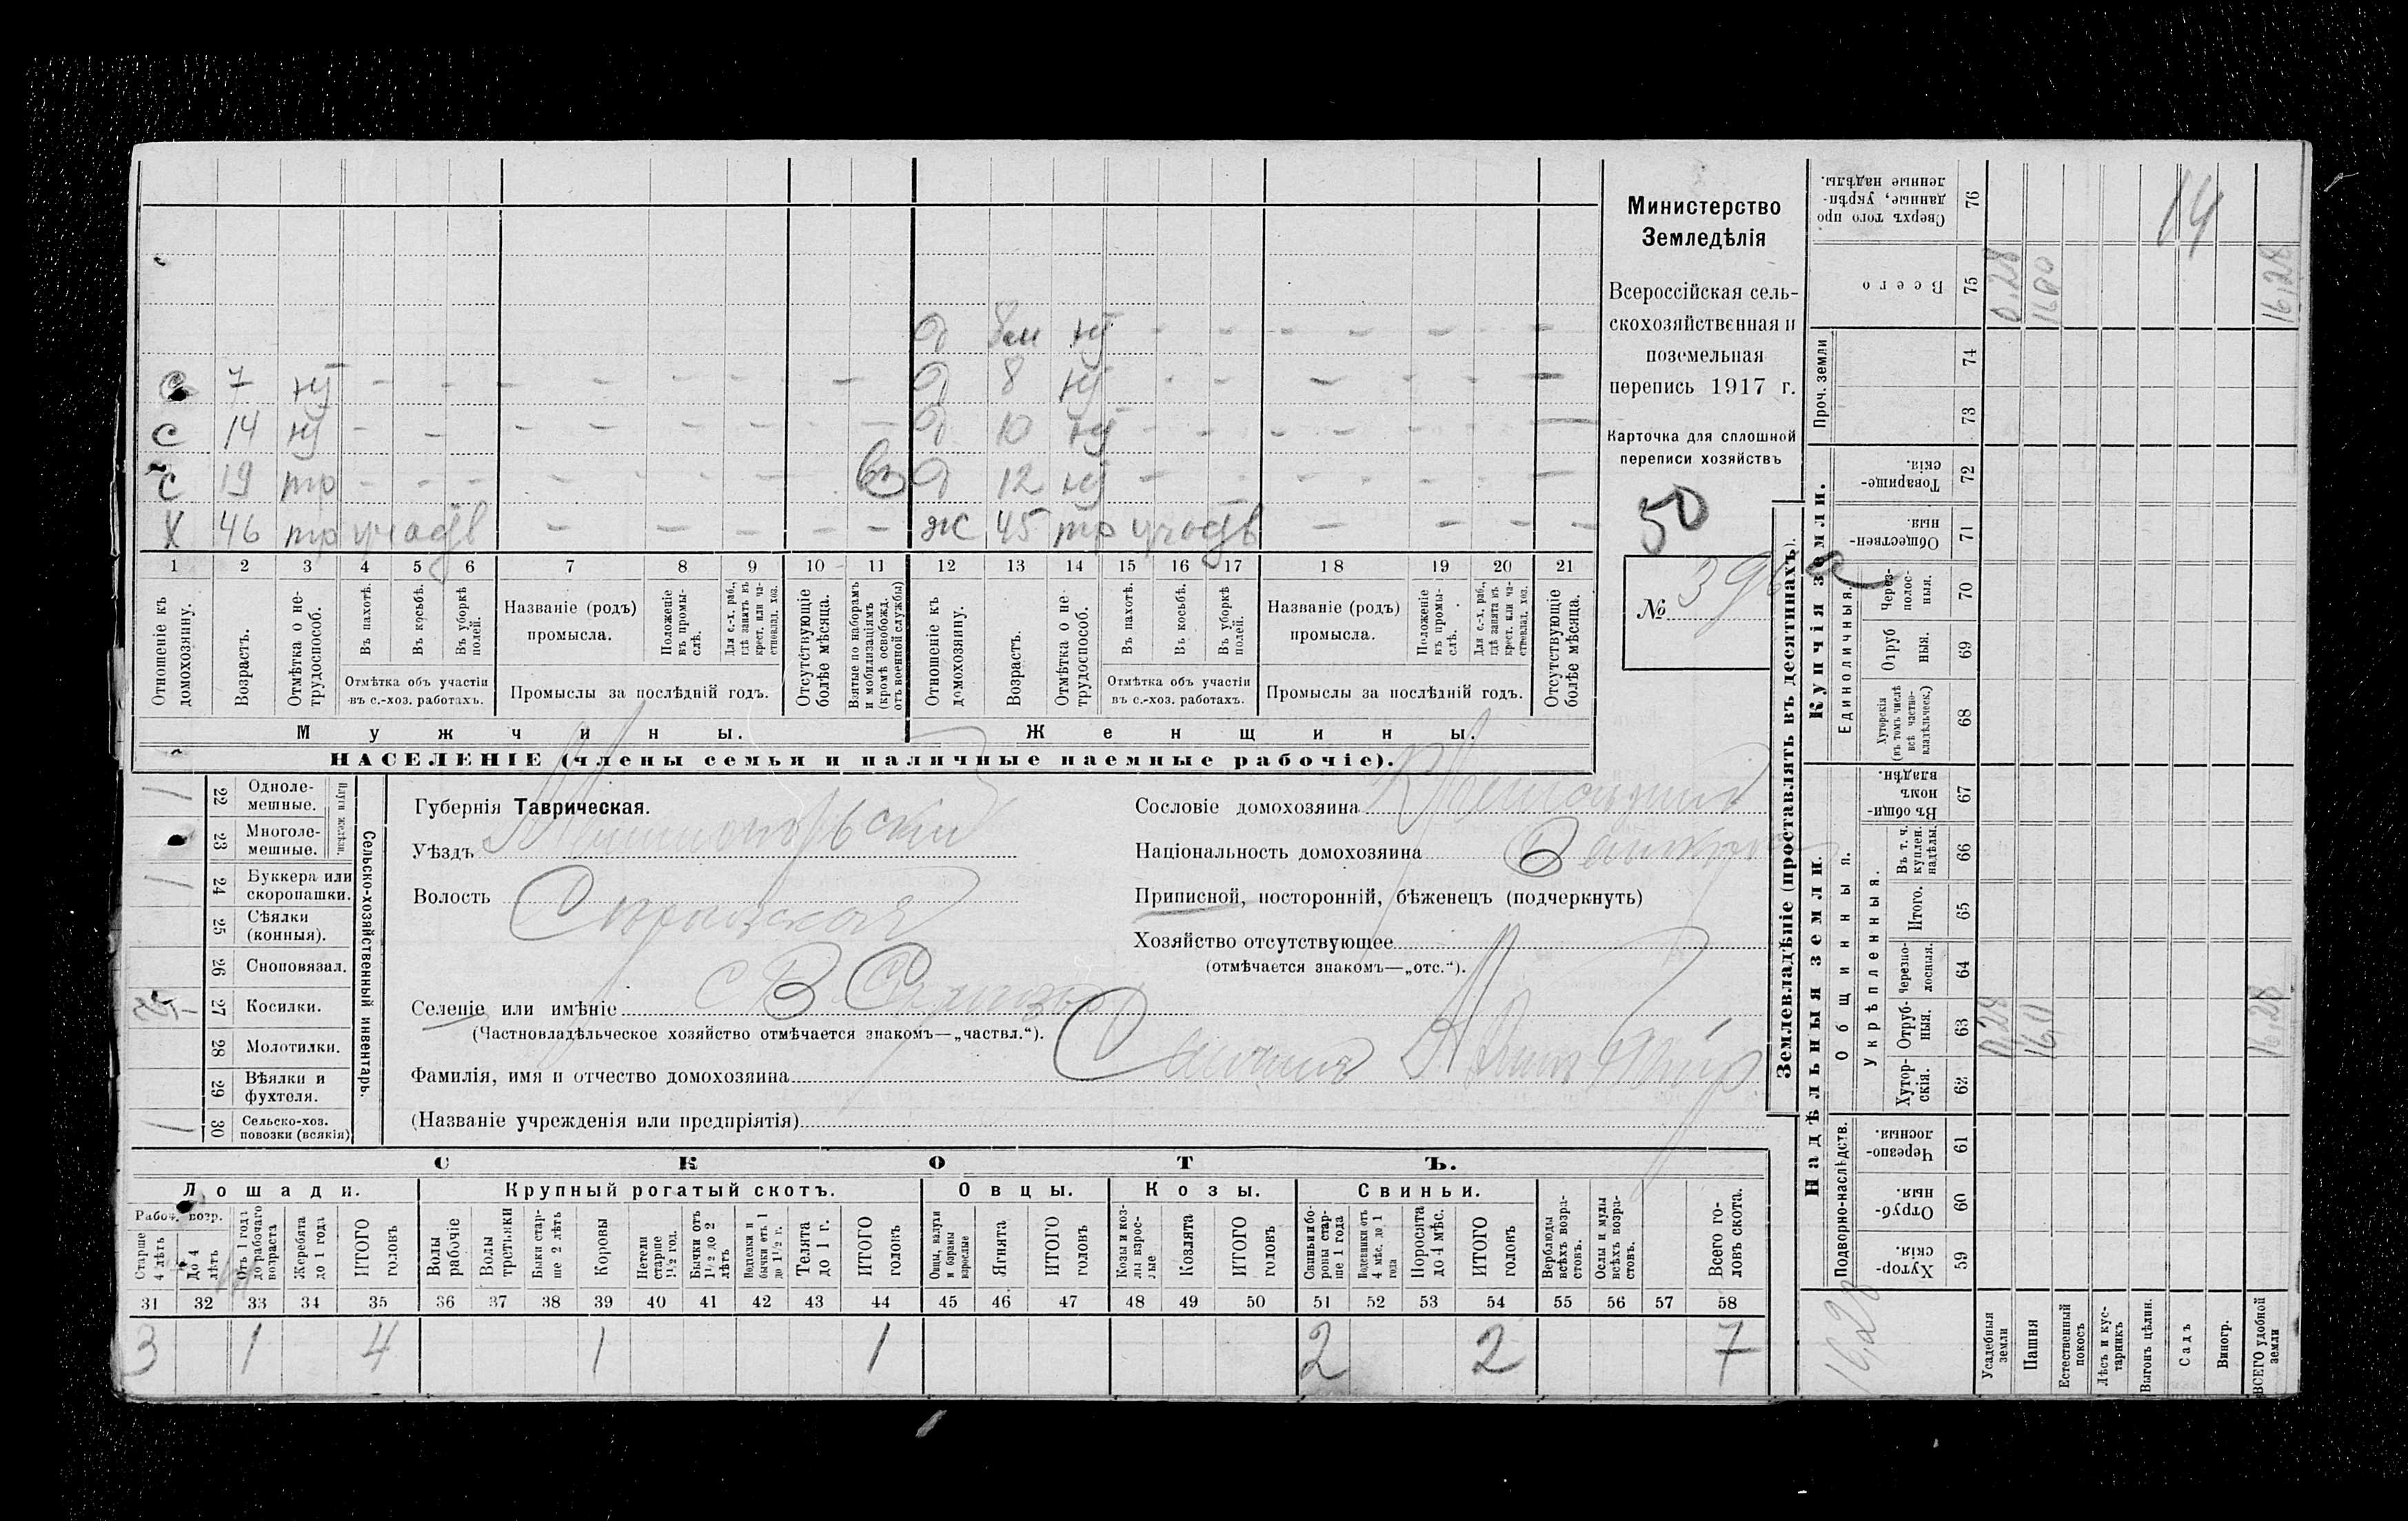 14
О 8м ну
с 7 ну О 8 ну
с 14 ну О 10 ну
с 19 тр О 12 ну
Х 46 тр ж 45 тр
1 2 3 4 5 6 7 8 9 10 11 12 13 14 15 16 17 18 19 20 21
Отношеніе къ домохозяину.
Возрастъ.
Отмѣтка о не-
трудоспособ.
Въ пахотѣ.
Въ косьбѣ.
Въ уборкѣ
полей.
Отмѣтка объ участіи
въ с.-хоз. работахъ.
Названіе (родъ)
промысла.
Положеніе
въ промы-
слѣ.
Для с.-х. раб.,
гдѣ занятъ въ
крест. или ча-
стновлад. хоз.
Промыслы за послѣдній годъ.
Отсутствующіе
болѣе мѣсяца.
Взятые по наборамъ
и мобилизаціямъ
(кромѣ освобожд.
отъ военной службы)
Отношеніе къ
домохозяину.
Возрастъ.
Отмѣтка о не-
трудоспособ.
Въ пахотѣ.
Въ косьбѣ.
Въ уборкѣ
полей.
Отмѣтка объ участіи
въ с.-хоз. работахъ.
Названіе (родъ)
промысла.
Положеніе
въ промы-
слѣ.
Для с.-х. раб.,
гдѣ занята въ
крест. или ча-
стновлад. хоз.
Промыслы за послѣдній годъ.
Отсутствующіе
болѣе мѣсяца.
Мужчины. Женщины.
НАСЕЛЕНІЕ (члены семьи и наличные наемные рабочіе).
Министерство
Земледѣлія
Всероссійская сель-
скохозяйственная и
поземельная
перепись 1917 г.
Карточка для сплошной
переписи хозяйствъ
50
№
22 Одноле-
мешные.
23 Многоле-
мешные.
Плуги желѣзн.
24 Буккера или
скоропашки.
25 Сѣялки
(конныя).
26 Сноповязал.
27 Косилки.
28 Молотилки.
29 Вѣялки и
фухтеля.
30 Сельско-хоз.
повозки (всякія)
Сельско-хозяйственный инвентарь.
Губернія Таврическая.
Уѣздъ
Волость
Селеніе или имѣніе
(Частновладѣльческое хозяйство отмѣчается знакомъ—„частвл.“).
Фамилія, имя и отчество домохозяина
(Названіе учрежденія или предпріятія)
Сословіе домохозяина
Національность домохозяина
Приписной, посторонній, бѣженецъ (подчеркнуть)
Хозяйство отсутствующее
(отмѣчается знакомъ—„отс.“).
СКОТЪ.
Лошади. Крупный рогатый скотъ. Овцы. Козы. Свиньи.
Рабоч. возр.
Старше
4 лѣтъ
До 4
лѣтъ
Отъ 1 года
до рабочаго
возраста
Жеребята
до 1 года
ИТОГО
головъ
Волы
рабочіе
Волы
третьяки
Быки стар-
ше 2 лѣтъ
Коровы
Нетели
старше
1½ год.
Бычки отъ
1½ до 2
лѣтъ
Подтелки и
бычки отъ 1
до 1½ г.
Телята
до 1 г.
ИТОГО
головъ
Овцы, валухи
и бараны
взрослые
Ягнята
ИТОГО
головъ
Козы и коз-
лы взрос-
лые
Козлята
ИТОГО
головъ
Свиньи и бо-
ровы стар-
ше 1 года
Подсвинки отъ
4 мѣс. до 1
года
Поросята
до 4 мѣс.
ИТОГО
головъ
Верблюды
всѣхъ возра-
стовъ.
Ослы и мулы
всѣхъ возра-
стовъ.
Всего го-
ловъ скота.
31 32 33 34 35 36 37 38 39 40 41 42 43 44 45 46 47 48 49 50 51 52 53 54 55 56 57 58
3 1 4 1 1 2 2 7
Землевладѣніе (проставлять въ десятинахъ).
Купчія земли.
Надѣльныя земли.
Сверхъ того про
данные, укрѣп-
ленные надѣлы.
76
Всего
75 0,28 16,00 16,28
Проч. земли
74
73
Товарище-
скія.
72
Обществен-
ныя.
71
Единоличныя.
Через-
полос-
ныя.
70
Отруб
ныя.
69
Хуторскія
(въ томъ числѣ
всѣ частно-
владѣльческ.)
68
Общинныя.
Въ общи
номъ
владѣн.
67
Укрѣпленныя.
Въ т. ч.
куплен.
надѣлы.
66
Итого.
65
Черезпо-
лосныя.
64
Отруб-
ныя.
63 0,28 16,0 16,28
Хутор-
скія.
62
Подворно-наслѣдств.
Черезпо-
лосныя.
61
Отруб-
ныя.
60
Хутор-
скія.
59
16,28
Усадебныя
земли
Пашня
Естественный
покосъ
Лѣсъ и кус-
тарникъ
Выгонъ цѣлин.
Садъ
Виногр.
ВСЕГО удобной
земли